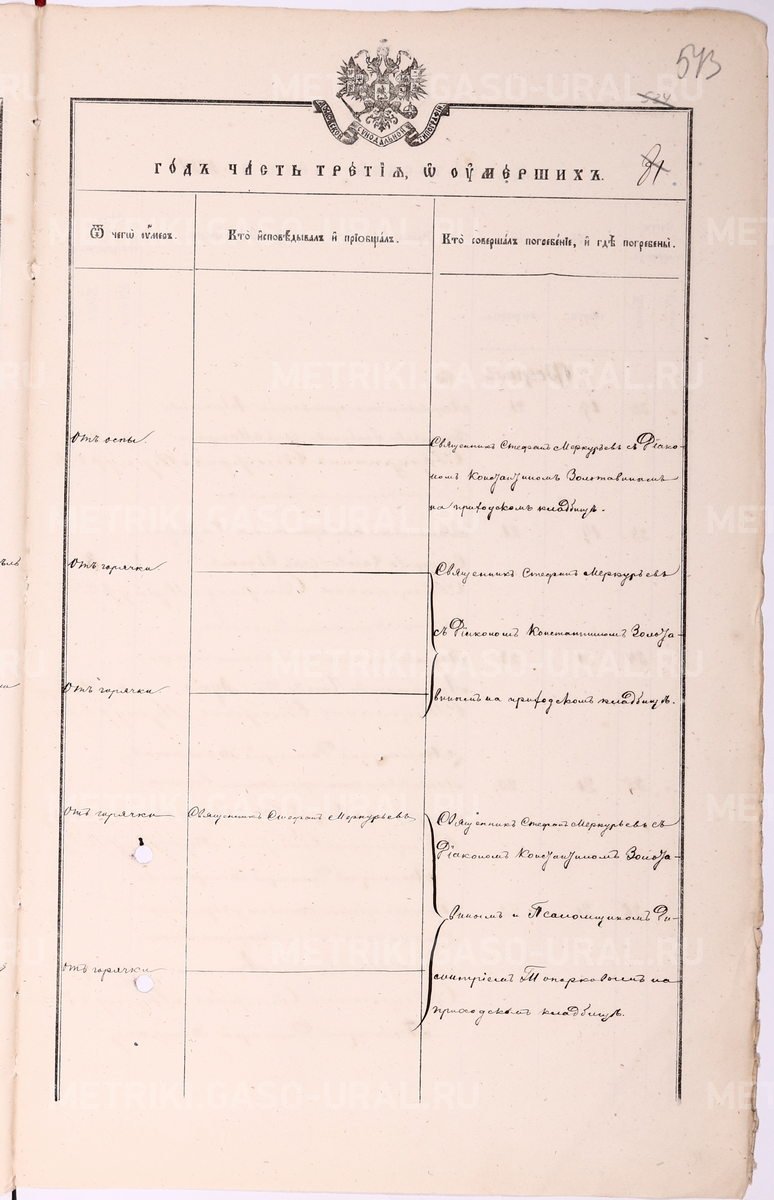 573
524
ГОДЪ ЧАСТЬ ТРЕТІѦ, Ѡ ОУМЕРШИХЪ.
81
Ѿ чегѡ оумеръ.
Кто исповѣдывалъ и прїобщалъ.
Кто совершалъ погребенїе, и гдѣ погребены.
Отъ оспы.
Священникъ Стефанъ Меркурьевъ съ Діако-
номъ Константиномъ Золотавинымъ
на приходскомъ кладбищѣ.
Отъ горячки.
Священникъ Стефанъ Меркурьевъ
съ Діакономъ Константиномъ Золота-
Отъ горячки
винымъ на приходскомъ кладбищѣ.
Отъ горячки
Священникъ Стефанъ Меркурьевъ
Священникъ Стефанъ Меркурьевъ съ
Діакономъ Константиномъ Золота-
винымъ и Псаломщикомъ Ди-
Отъ горячки
митріемъ Топорковымъ на
приходскомъ кладбищѣ.
METRIKI.GASO-URAL.RU